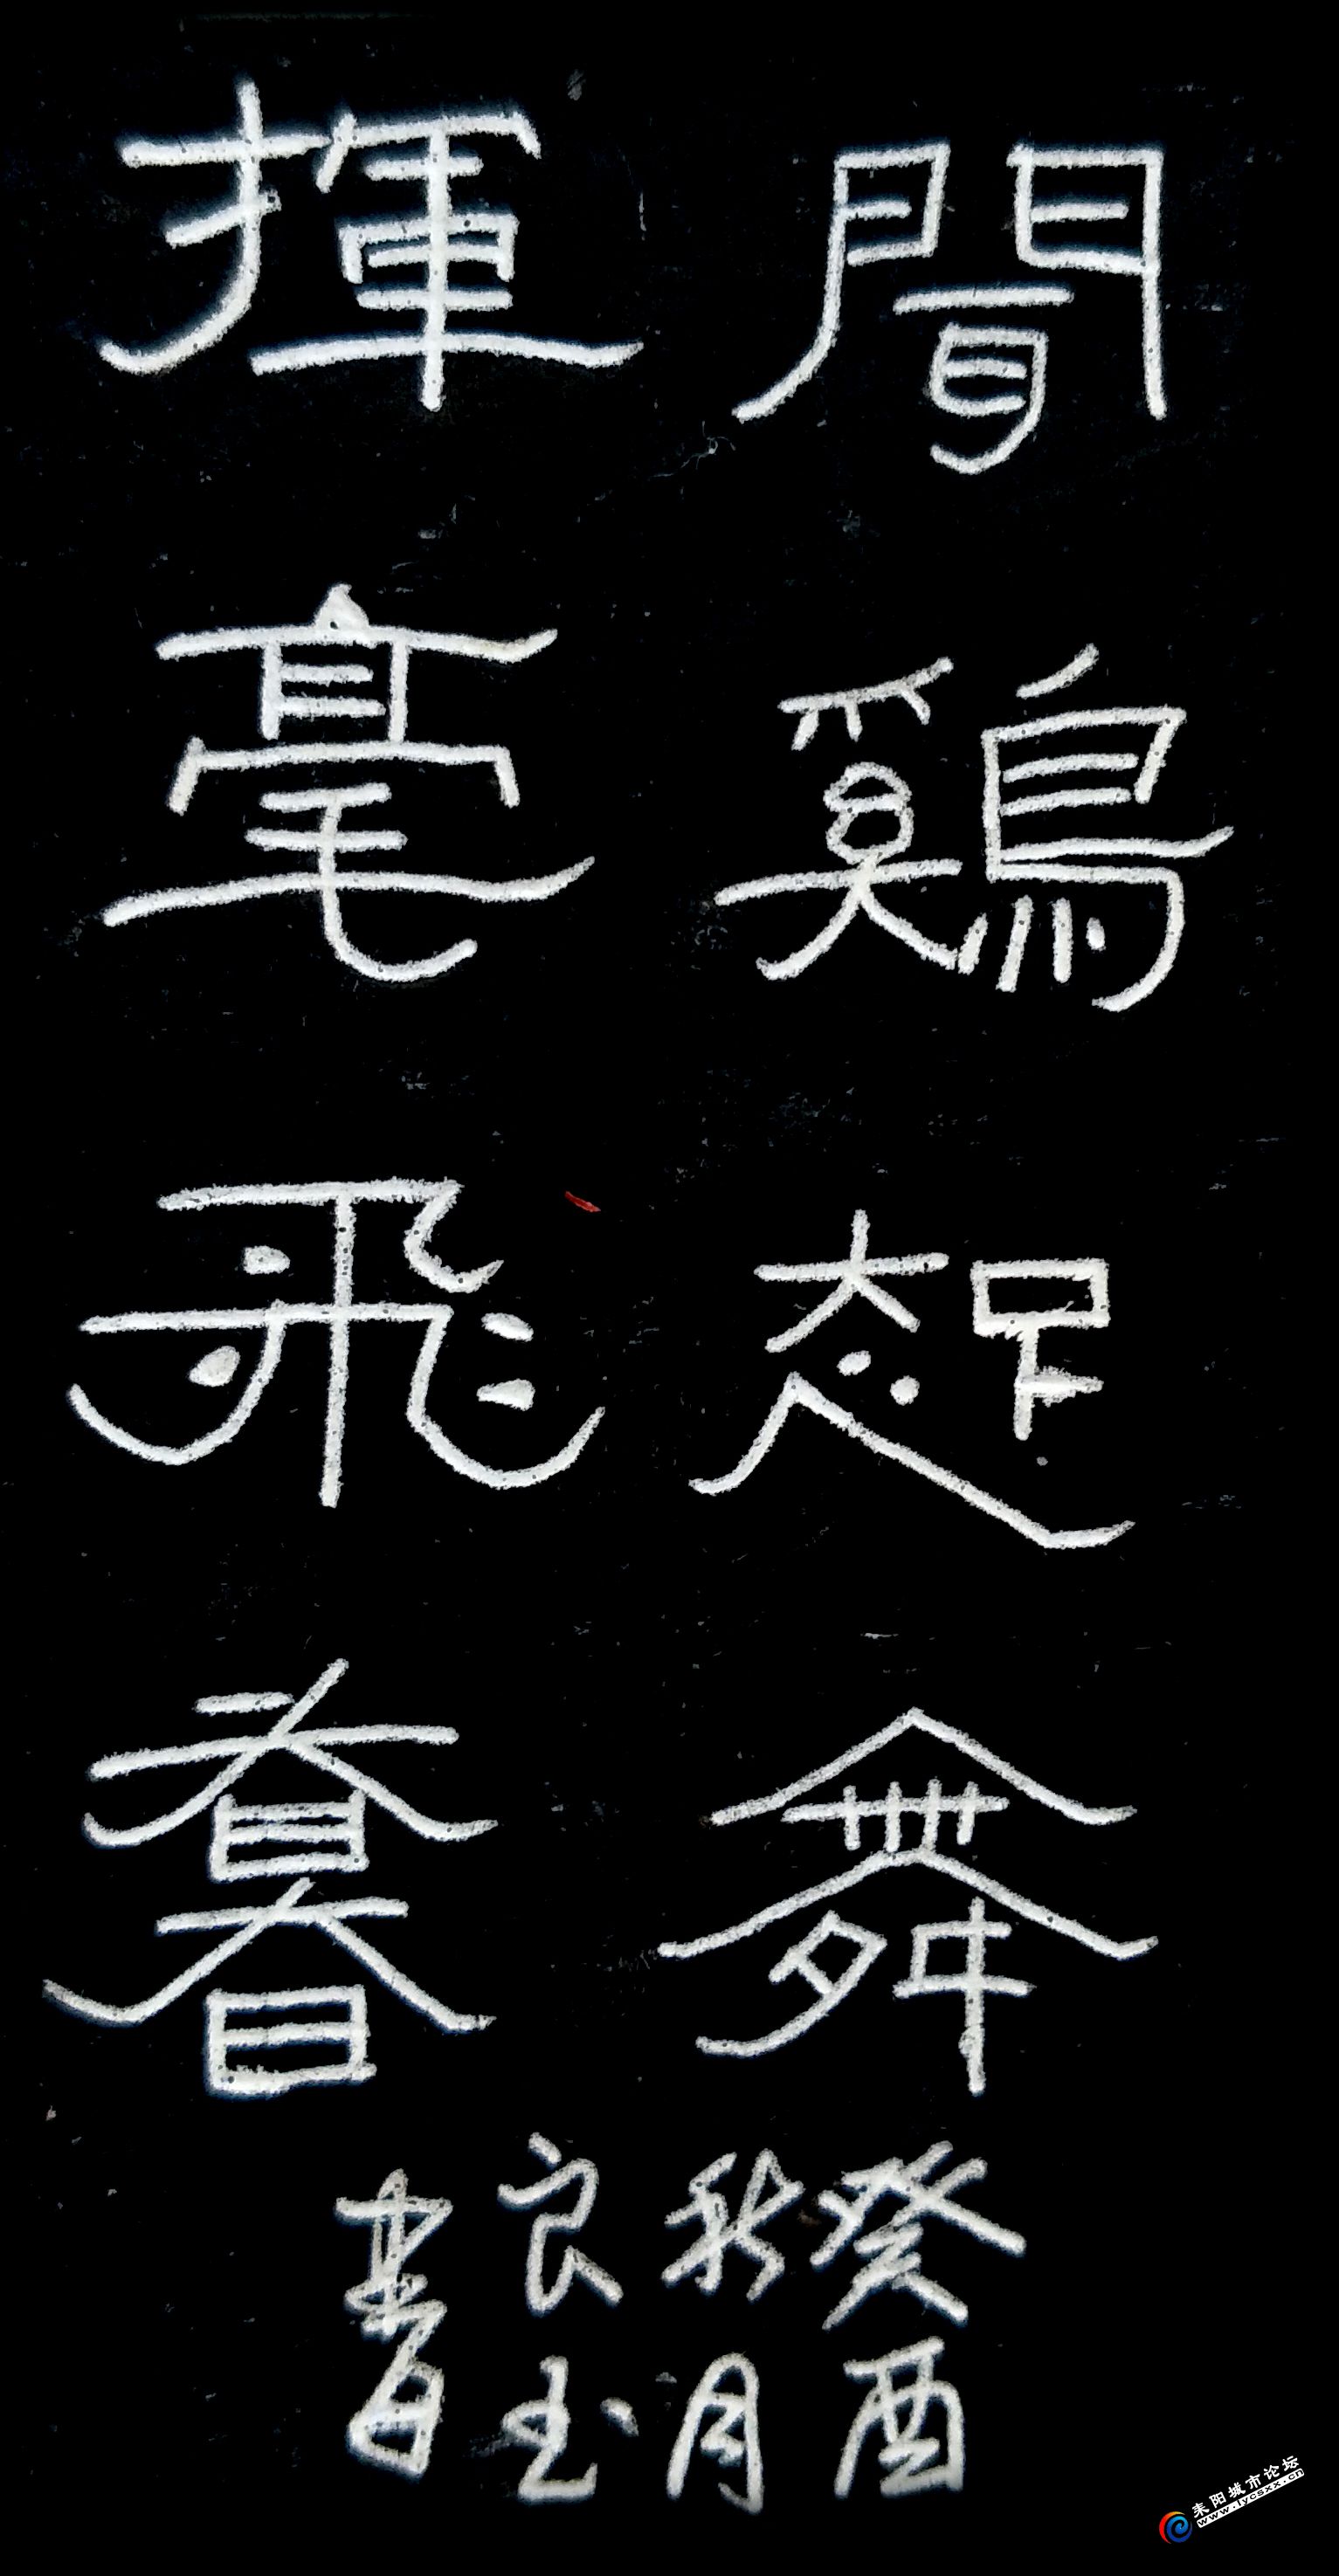 聞鷄起舞
揮毫飛暮
癸酉
秋月
良玉
書
耒阳城市论坛
www.lycsxx.cn